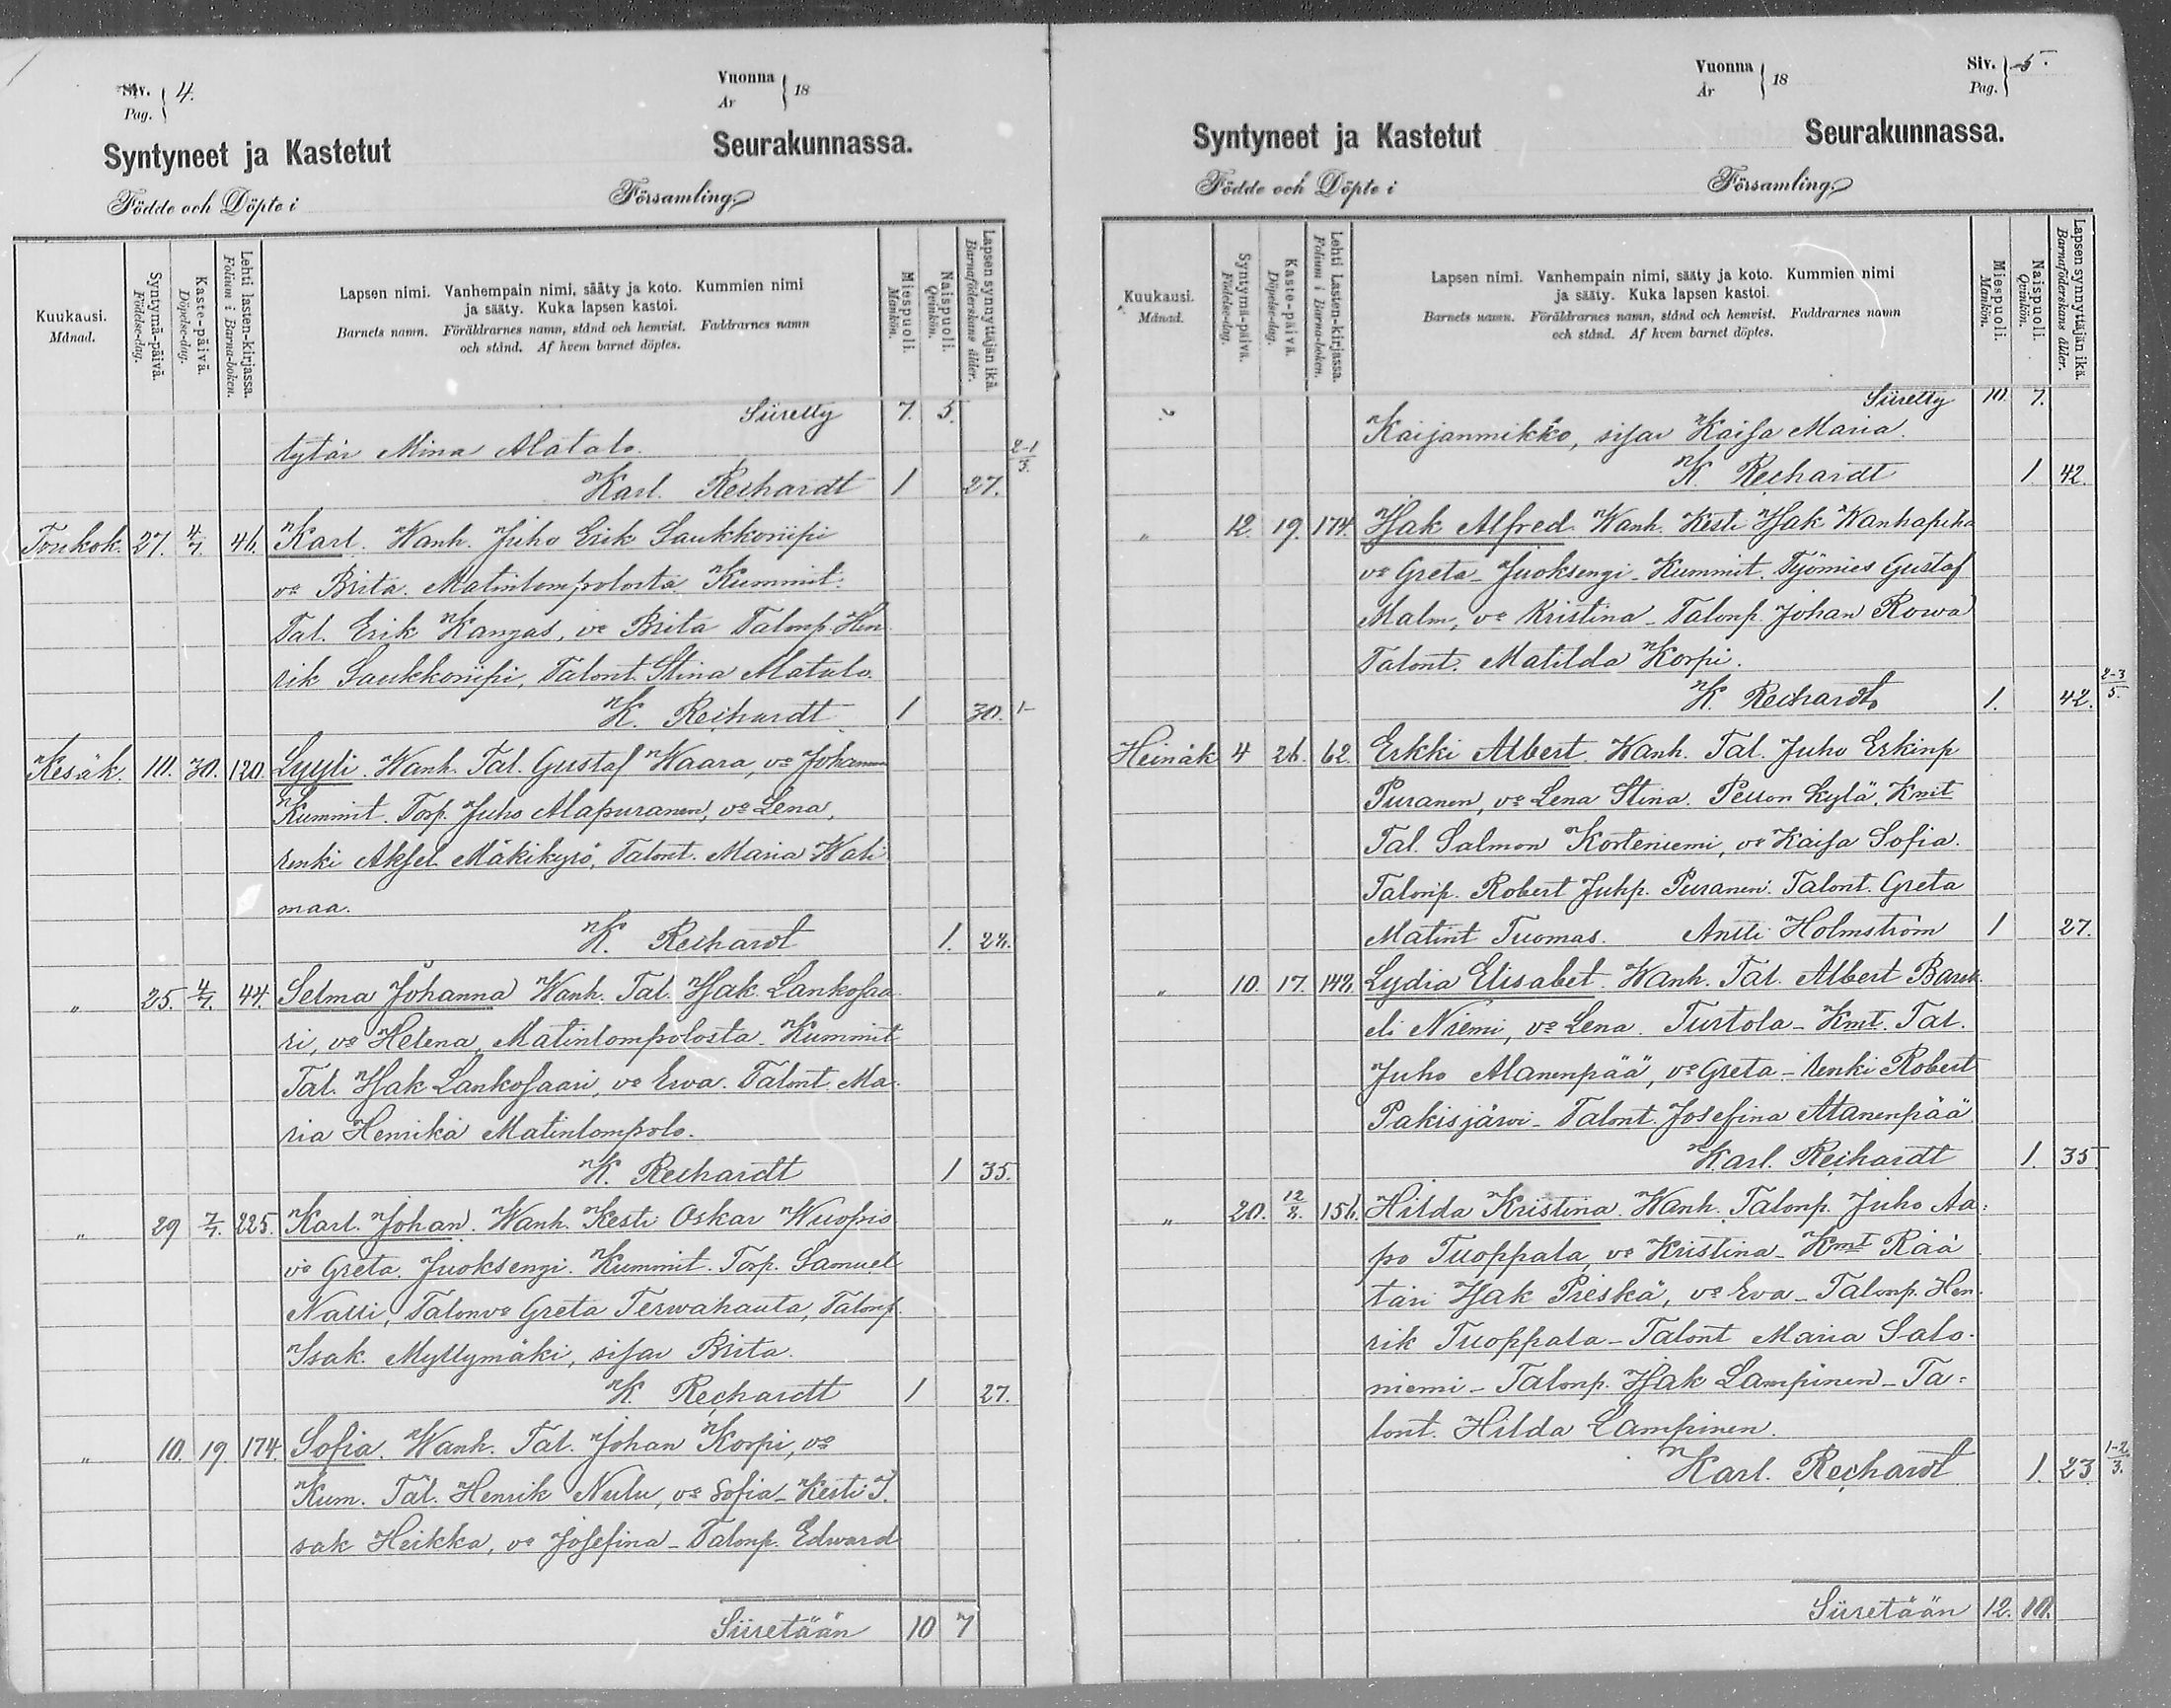 Siv. Pag. 4.
Vuonna År 18
Syntyneet ja Kastetut Seurakunnassa.
Födde och Döpte i Församling
Kuukausi. Månad.
Syntymä-päivä. Födelse-dag.
Kaste-päivä. Döpelse-dag.
Lehti lasten-kirjassa. Folium i Barna-boken.
Lapsen nimi. Vanhempain nimi, sääty ja koto. Kummien nimi
ja sääty. Kuka lapsen kastoi.
Barnets namn. Föräldrarnes namn, stånd och hemvist. Faddrarnes namn
och stånd. Af hvem barnet döptes.
Miespuoli. Mankön.
Naispuoli. Qvinkön.
Lapsen synnyttäjän ikä. Barnaföderskans ålder.
Siiretty 7. 5.
tytär Mina Alatalo.
Karl. Rechardt 1 27. 2-1/3.
Toukok. 27. 4/7. 46. Karl. Wanh. Juho Erik Saukkoriipi
vo Brita. Matinlompolosta Kummit.
Tal. Erik Kangas, vo Brita Talonp. Hen
rik Saukkoriipi, Talont. Stina Alatalo.
K. Rechardt 1 30. 1-
Kesäk. 10. 30. 120. Lyyli. Wanh. Tal. Gustaf Waara, vo Johanna
Kummit. Torp. Juho Alapuranen, vo Lena,
renki Aksel Mäkikyrö, Talont. Maria Wali
maa.
K. Rechardt 1. 28.
" 25. 4/7. 44. Selma Johanna Wanh. Tal. Isak Lankosaa
ri, vo Helena, Matinlompolosta. Kummit
Tal. Isak Lankosaari, vo Ewa. Talont. Ma
ria Henrika Matinlompolo.
K. Rechardt 1 35.
" 29 7/7. 225. Karl. Johan. Wanh. Kesti Oskar Wuopio
vo Greta. Juoksengi. Kummit. Torp. Samuel
Natti, Talonvo Greta Terwahauta, Talonp.
Isak. Myllymäki, sisar Brita.
K. Rechardt 1 27.
" 10. 19. 174. Sofia. Wanh. Tal. Johan Korpi, vo
Kum. Tal. Henrik Nulu, vo Sofia - Kesti I.
sak Heikka, vo Josefina - Talonp. Edward
Siiretään 10 7
Vuonna År 18
Siv. Pag. 5.
Syntyneet ja Kastetut Seurakunnassa.
Födde och Döpte i Församling
Kuukausi. Månad.
Syntymä-päivä. Födelse-dag.
Kaste-päivä. Döpelse-dag.
Lehti Lasten-kirjassa. Folium i Barna-boken.
Lapsen nimi. Vanhempain nimi, sääty ja koto. Kummien nimi
ja sääty. Kuka lapsen kastoi.
Barnets namn. Föräldrarnes namn, stånd och hemvist. Faddrarnes namn
och stånd. Af hvem barnet döptes.
Miespuoli. Mankön.
Naispuoli. Qvinkön.
Lapsen synnyttäjän ikä. Barnaföderskans ålder.
Siiretty 10. 7.
Kaijanmikko, sisar Kaisa Maria.
K. Rechardt 1. 42.
" 12. 19. 174. Isak Alfred. Wanh. Kesti Isak Wanhapiha
vo Greta - Juoksengi - Kummit. Työmies Gustaf
Malm, vo Kristina - Talonp. Johan Rowa
Talont. Matilda Korpi.
K. Rechardt 1. 42. 2-3/5.
Heinäk 4 26. 62. Erkki Albert. Wanh. Tal. Juho Erkinp
Puranen, vo Lena Stina. Pellon kylä. Kmit
Tal. Salmon Korteniemi, vo Kaisa Sofia.
Talonp. Robert Juhp. Puranen. Talont. Greta
Matint Tuomas. Antti Holmström 1 27.
" 10. 17. 148. Lydia Elisabet. Wanh. Tal. Albert
eli Niemi, vo Lena. Turtola - Kmt. Tal.
Juho Alanenpää, vo Greta - renki Robert
Pakisjärwi - Talont. Josefina Alanenpää
Karl. Reichardt 1. 35
" 20. 12/8. 156. Hilda Kristina. Wanh. Talonp. Juho Aa=
po Tuoppala, vo Kristina - Kmt Rää
täri Isak Preskä, vo Eva - Talonp. Hen
rik Tuoppala - Talont Maria Salo-
niemi - Talonp. Isak Lampinen - Ta=
lont. Hilda Lampinen.
Karl. Rechardt 1. 23 1-2/3.
Siiretään 12. 10.